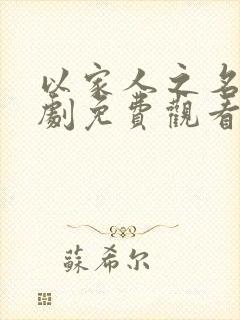 以家人之名
劇免費觀看
蘇希尔